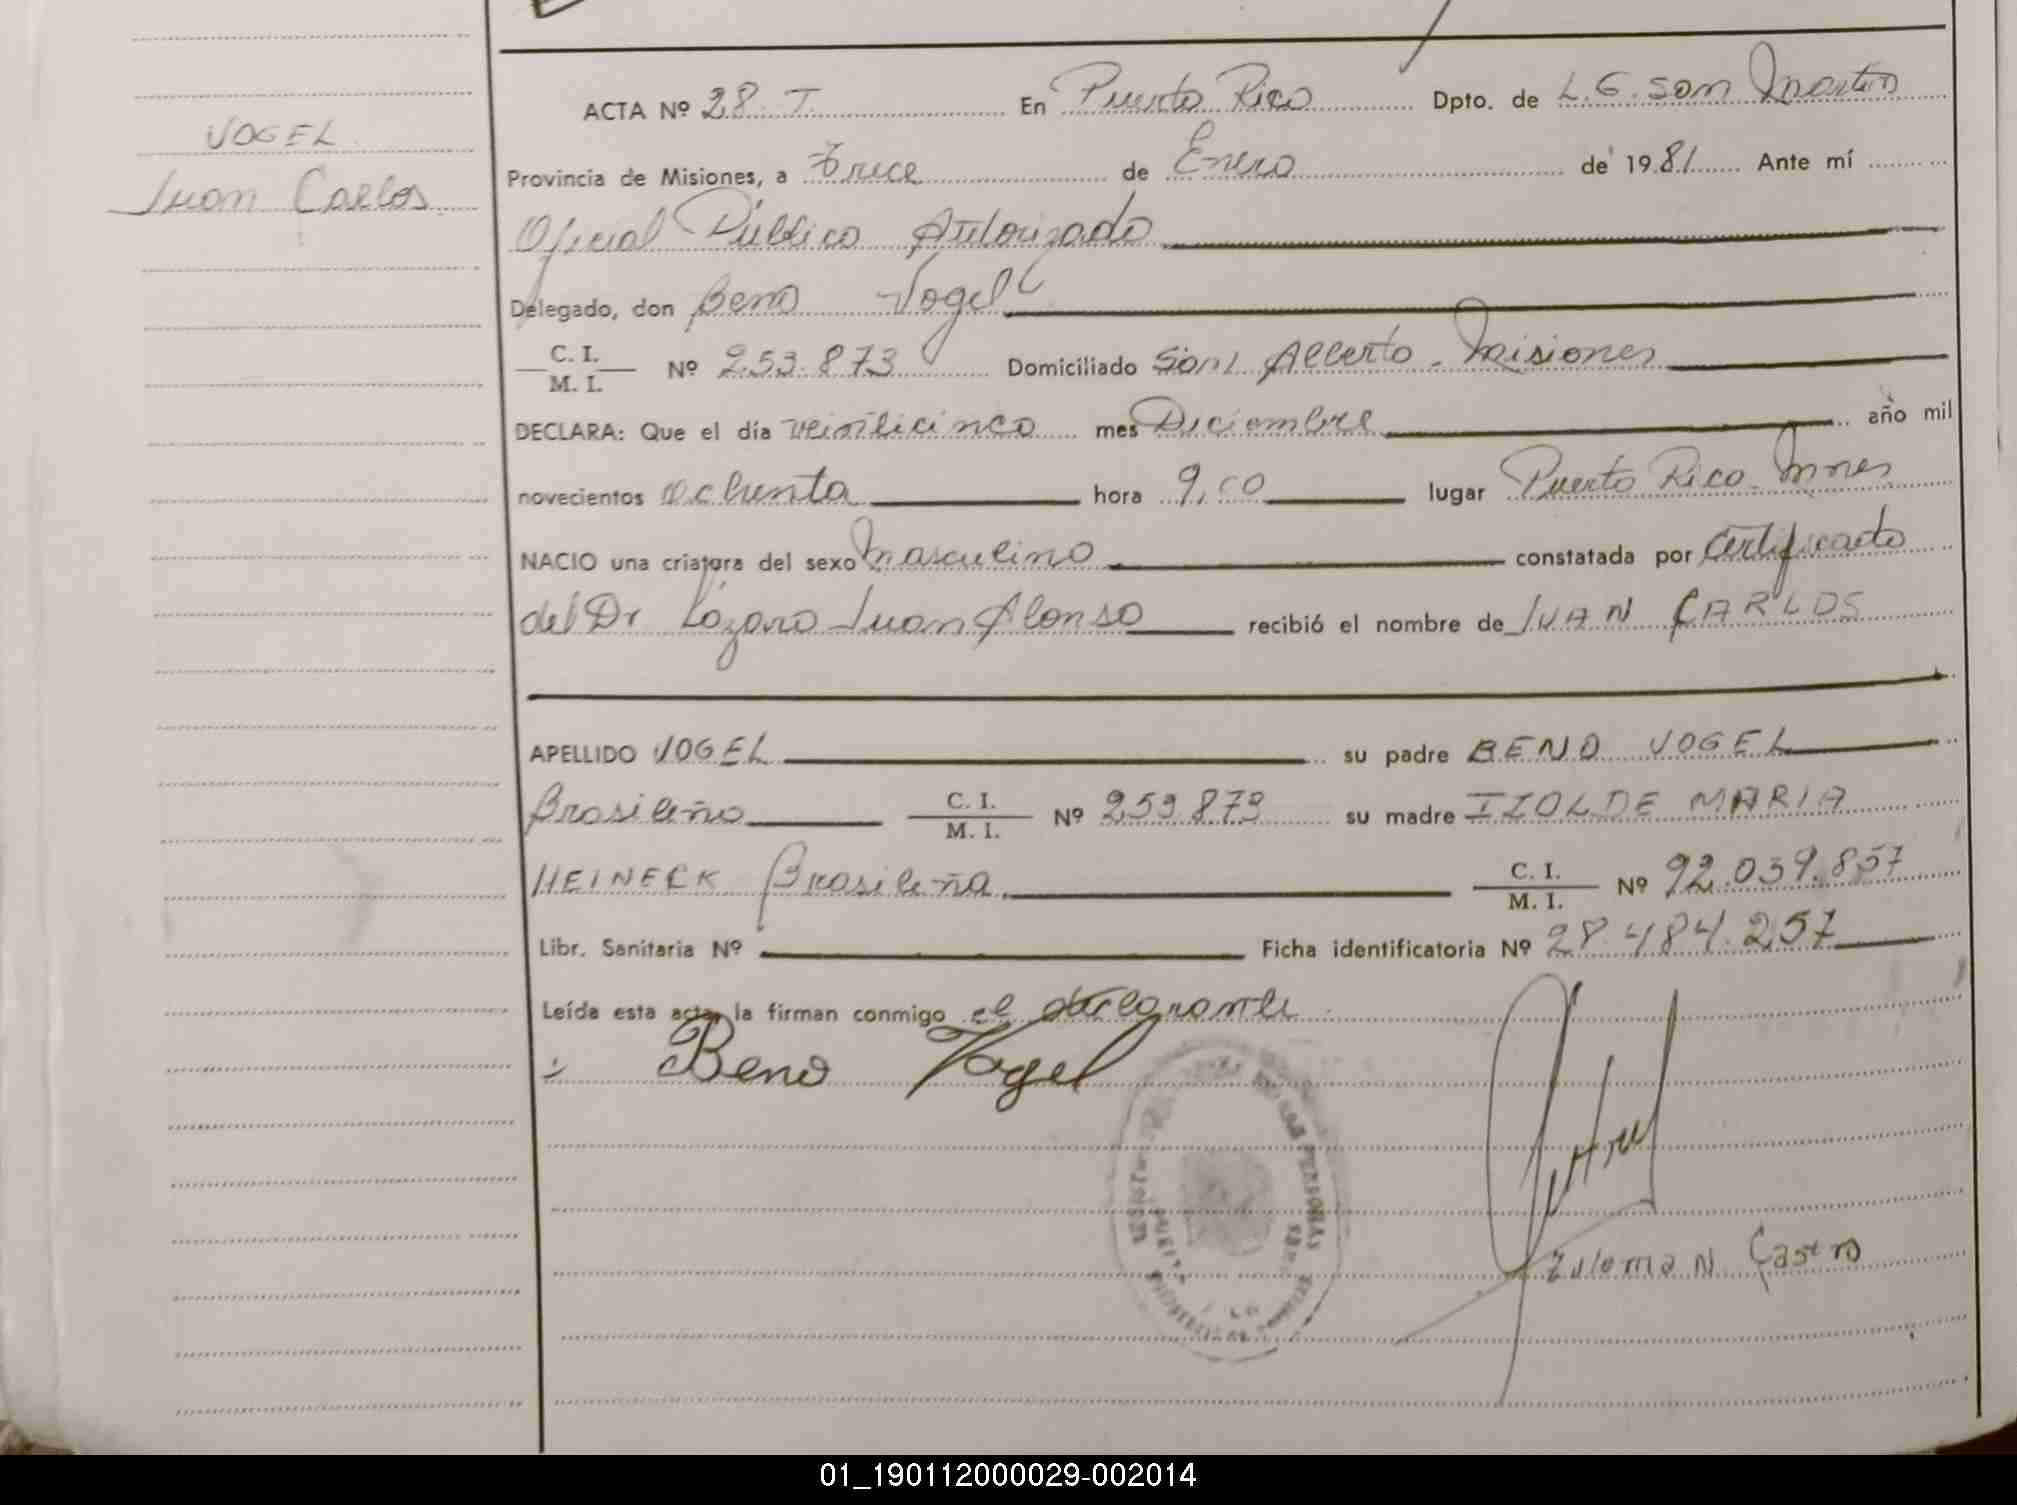 VOGEL
Juan Carlos
ACTA Nº 28. T. En Puerto Rico Dpto. de L.G. San Martin
Provincia de Misiones, a Trece de Enero de 1981 Ante mí
Oficial Público Autorizado
Delegado, don Beno Vogel
C. I.
M. I.
Nº 253.873 Domiciliado San Alberto - Misiones
DECLARA: Que el día veinticinco mes Diciembre año mil
novecientos ochenta hora 9,00 lugar Puerto Rico - Mnes
NACIO una criatura del sexo Masculino constatada por Certificado
del Dr Lázaro Juan Alonso recibió el nombre de JUAN CARLOS
APELLIDO VOGEL su padre BENO VOGEL
Brasileño C. I. Nº 253.873 su madre IZOLDE MARIA
M. I.
HEINECK Brasileña C. I. Nº 92.039.857
M. I.
Libr. Sanitaria Nº Ficha identificatoria Nº 28.484.257
Leída esta acta, la firman conmigo el declarante
Beno Vogel
LAS PERSONAS
Zulema N. Castro
01_190112000029-002014